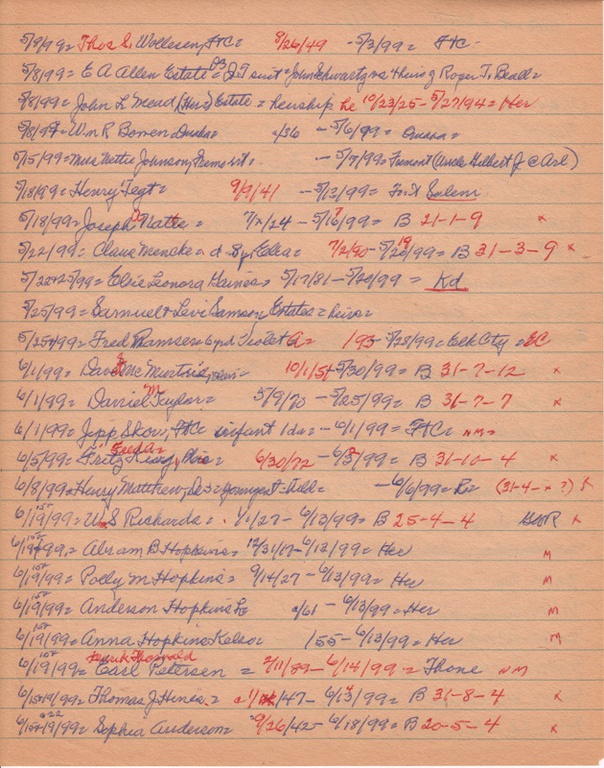 5/9/99= Thos S. Wollesen, FtC= 8/26/49 - 5/3/99= FtC-
5/8/99= E A Allen Estate= D3 J.T suit= John Schwartz vs Heirs of Roger T. Beall=
5/8/99= John L Mead (Hers) Estate= heirship he 10/23/25-5/27/94= Her
5/8/99= Wm R Bowen - 5/6/99=
5/15/99= Miss Nettie Johnson, - 5/7/99= Fremont (Uncle Gilbert J & Carl)
5/18/99= Henry Tegt= 9/9/41 - 5/12/99= Salem
5/18/99= Joseph Natte= 7/ /24 - 5/16/99= B 21-1-9 x
5/22/99= Claus Mencke= d 7/2/50-5/20/99= B 31-3-9 x
5/22&25/99= Elsie Leonora Haines= 5/17/81-5/20/99= Kd
5/25/99= Samuel & Levi Samson Estates= heirs=
5/25/99= Fred Ramser= 6 yrd Violet A= /93-5/28/99= Elk City= EC
6/1/99= David Mc Murtrie, 10/1/51-5/30/99= B 31-7-12 x
6/1/99= Daniel M Taylor= 5/9/70-5/25/99= B 31-7-7 x
6/1/99= Jepp Skow, FtC infant 1da= -6/1/99= FtC= NM=
6/5/99= Fritz 6/30/72-6/3/99= B 31-10-4 x
6/8/99= Henry Matthew, Ds= youngest child= -6/6/99= B= (31-4-x?) x
6/19/99= W.S Richards= 1/1/27-6/13/99= B 25-4-4 x
6/19/99= Abram B Hopkins= 12/31/17-6/13/99= Her M
6/19/99= Polly M Hopkins= 9/14/27-6/13/99= Her M
6/19/99= Anderson Hopkins a/61-6/13/99= Her M
6/19/99= Anna Hopkins Kelso= /55-6/13/99= Her M
6/19/99= Earl Petersen= 2/11/89-6/14/99= Thone NM
6/15&19/99= Thomas J. Hines= /47-6/13/99= B 31-8-4 x
6/15&19/99= Sophia Anderson= 9/26/42-6/18/99= B 20-5-4 x